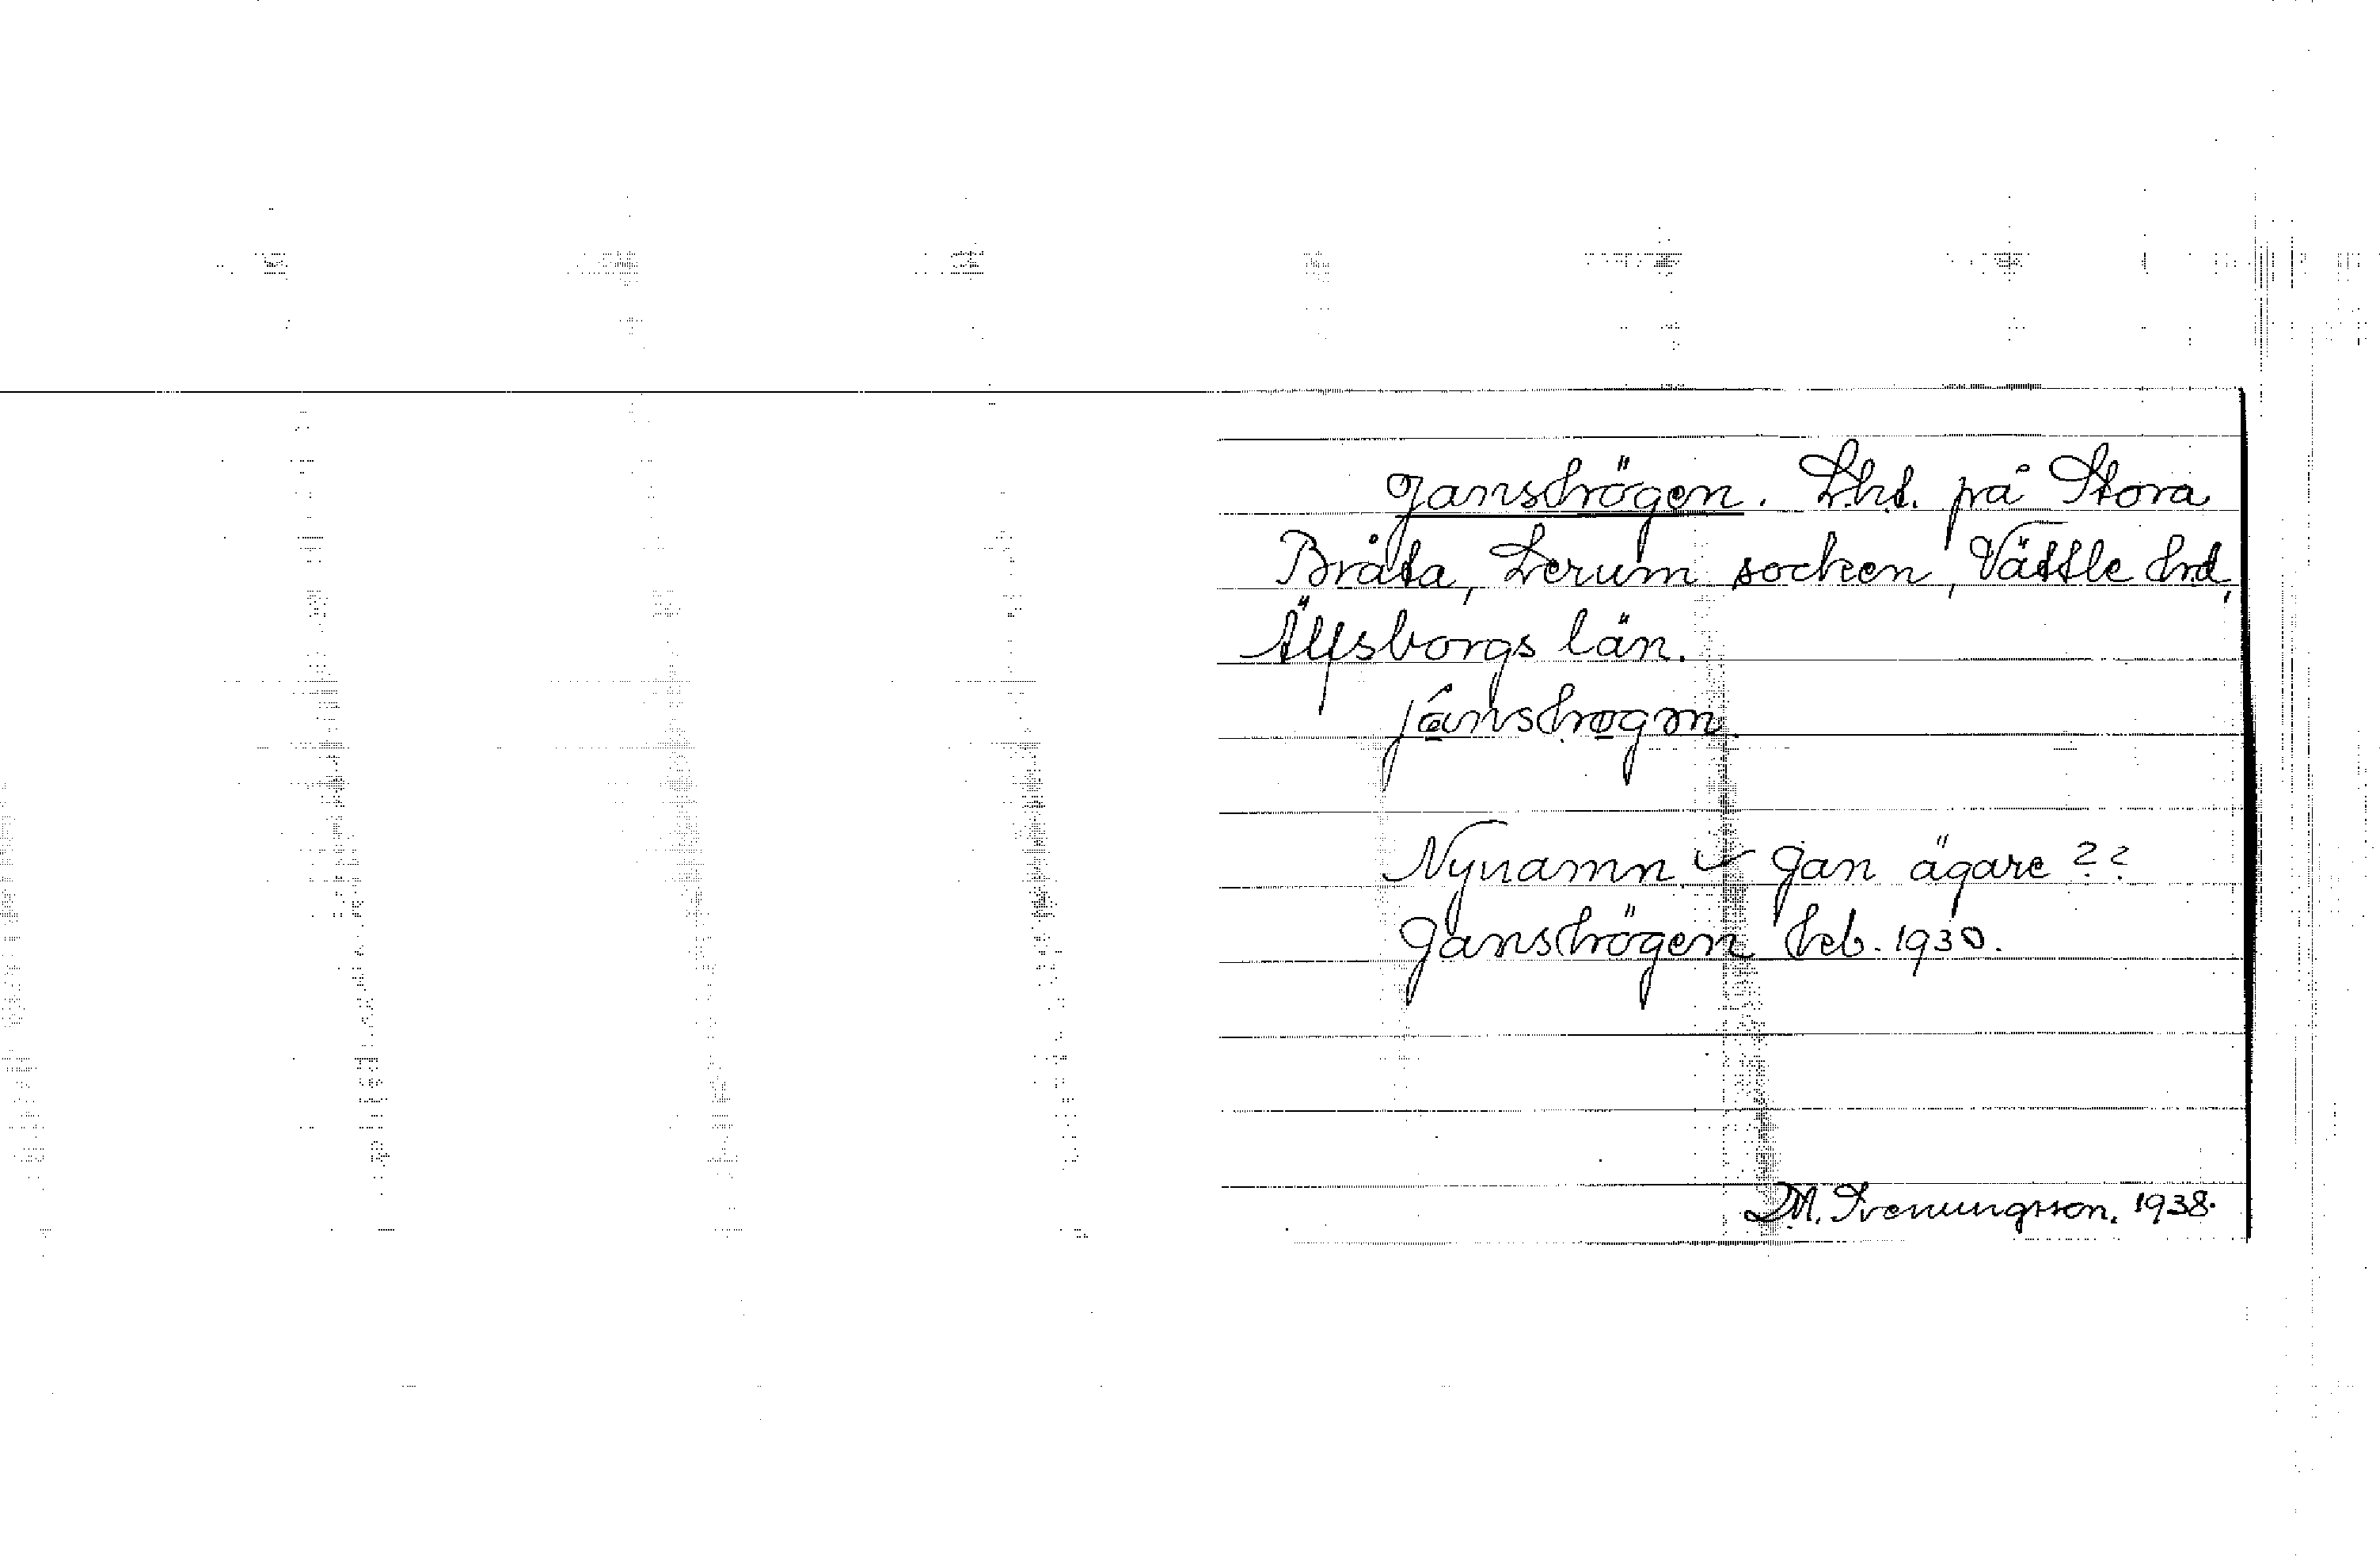 Janshögen. Lht. på Stora
Bråta, Lerum socken, Vättle hd,
Älfsborgs län.
Nynamn Jan ägare ??
Janshögen beb. 1930.
M. Svenungsson. 1938.